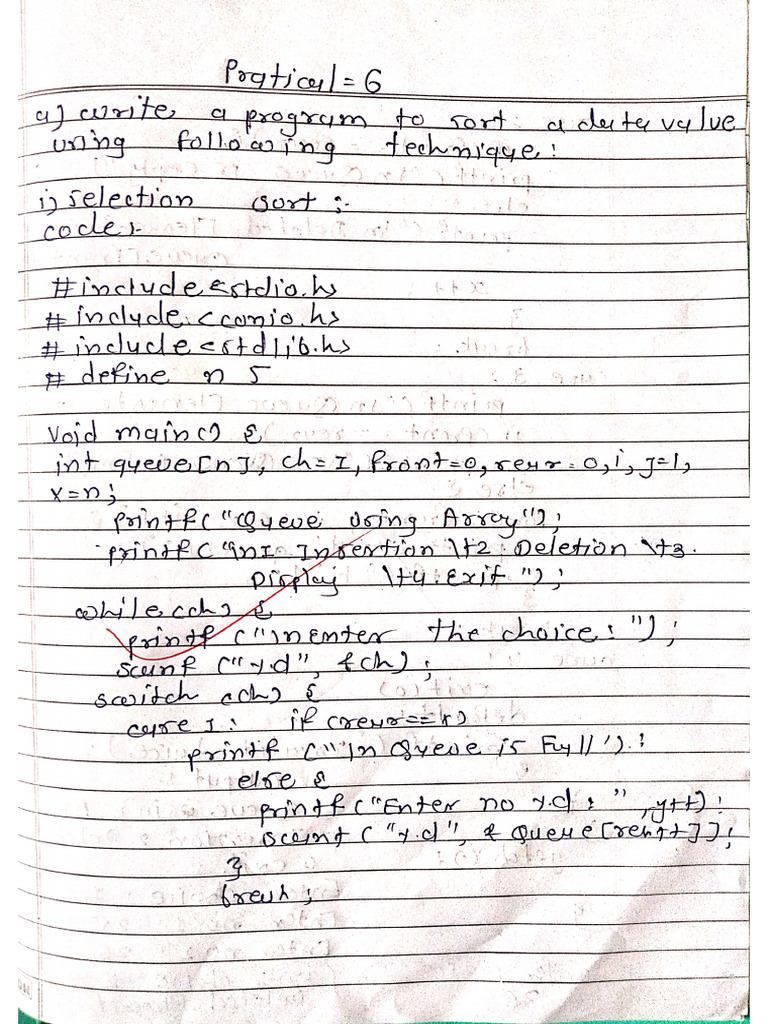 Pratical = 6
a) write a program to sort a data value
using following technique :
i) selection sort :-
code :-
#include <stdio.h>
# include <conio.h>
# include <stdlib.h>
# define n 5
void main() {
int queue[n], ch=1, front=0, rear=0, i, j=1,
x=n;
printf("Queue using Array");
printf("\n1. Insertion \t2. Deletion \t3.
Display \t4. Exit ");
while (ch) {
printf ("\nEnter the choice : ");
scanf ("%d", &ch);
switch (ch) {
case 1 : if (rear==x)
printf ("\n Queue is Full");
else {
printf("Enter no %d : ", y++);
scanf ("%d", & Queue[rear++]);
}
break ;